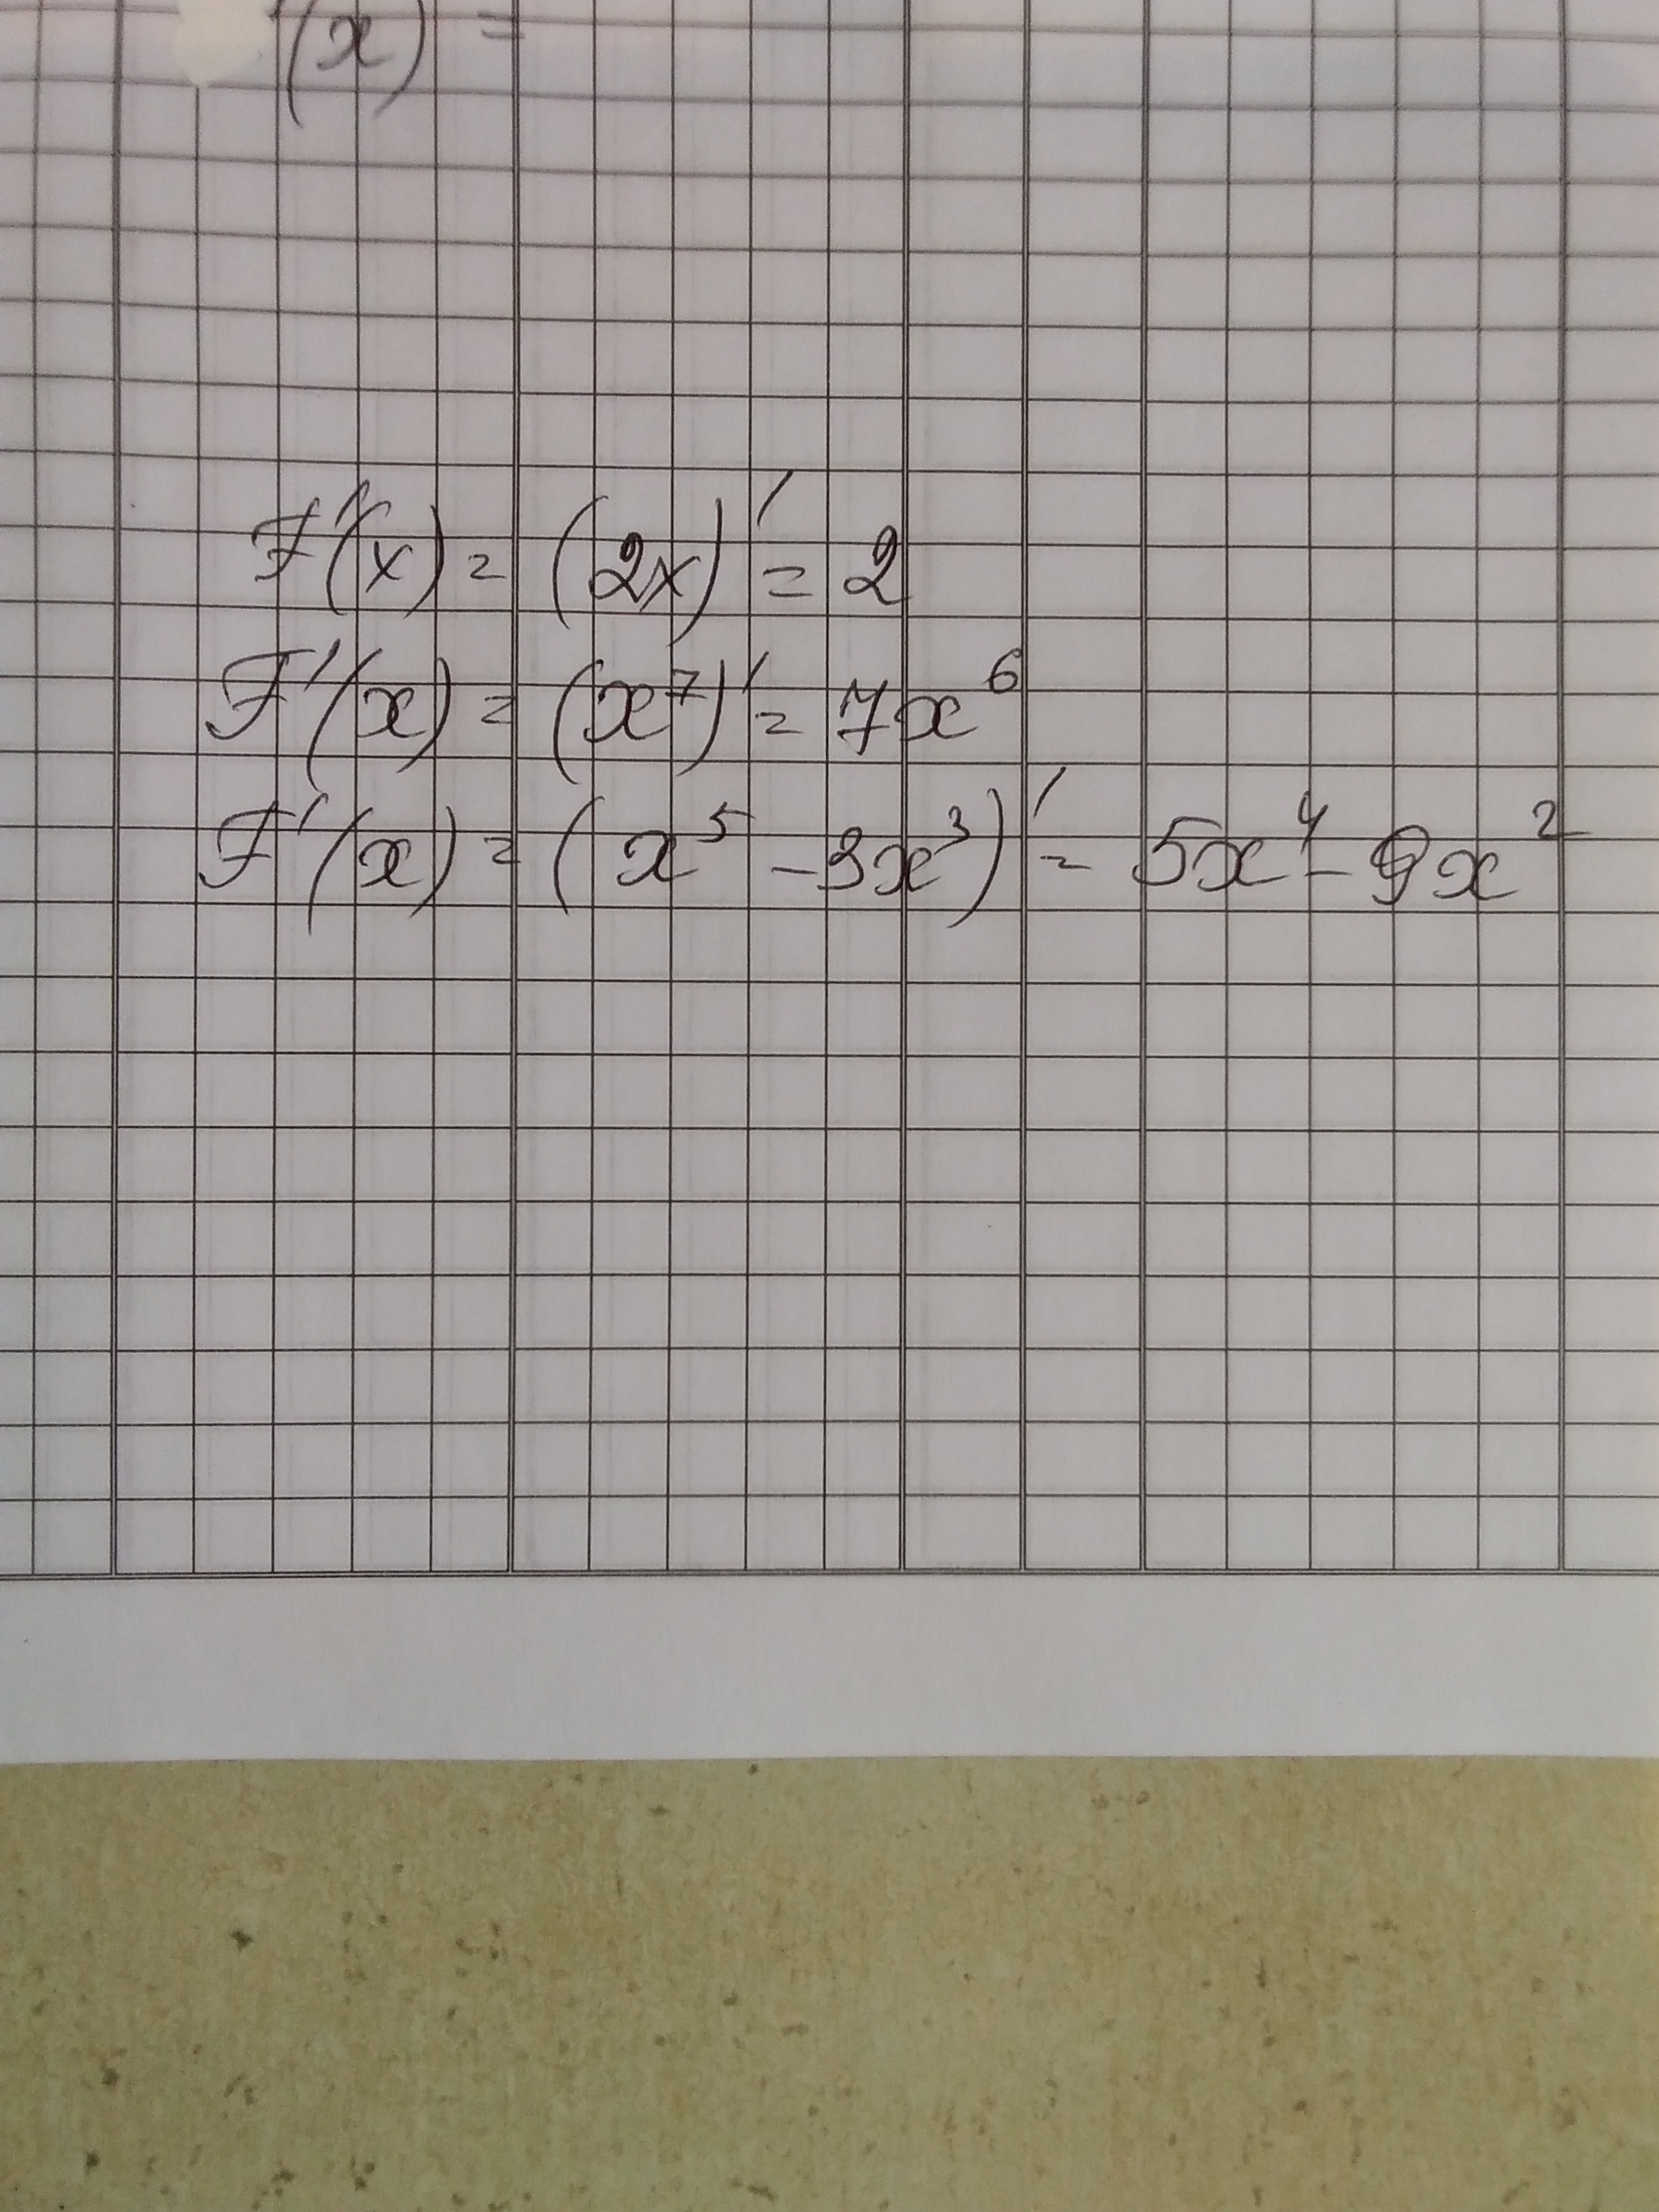 (x) =
F'(x) = (2x)' = 2
F'(x) = (x⁷)' = 7x⁶
F'(x) = (x⁵ - 3x³)' = 5x⁴ - 9x²